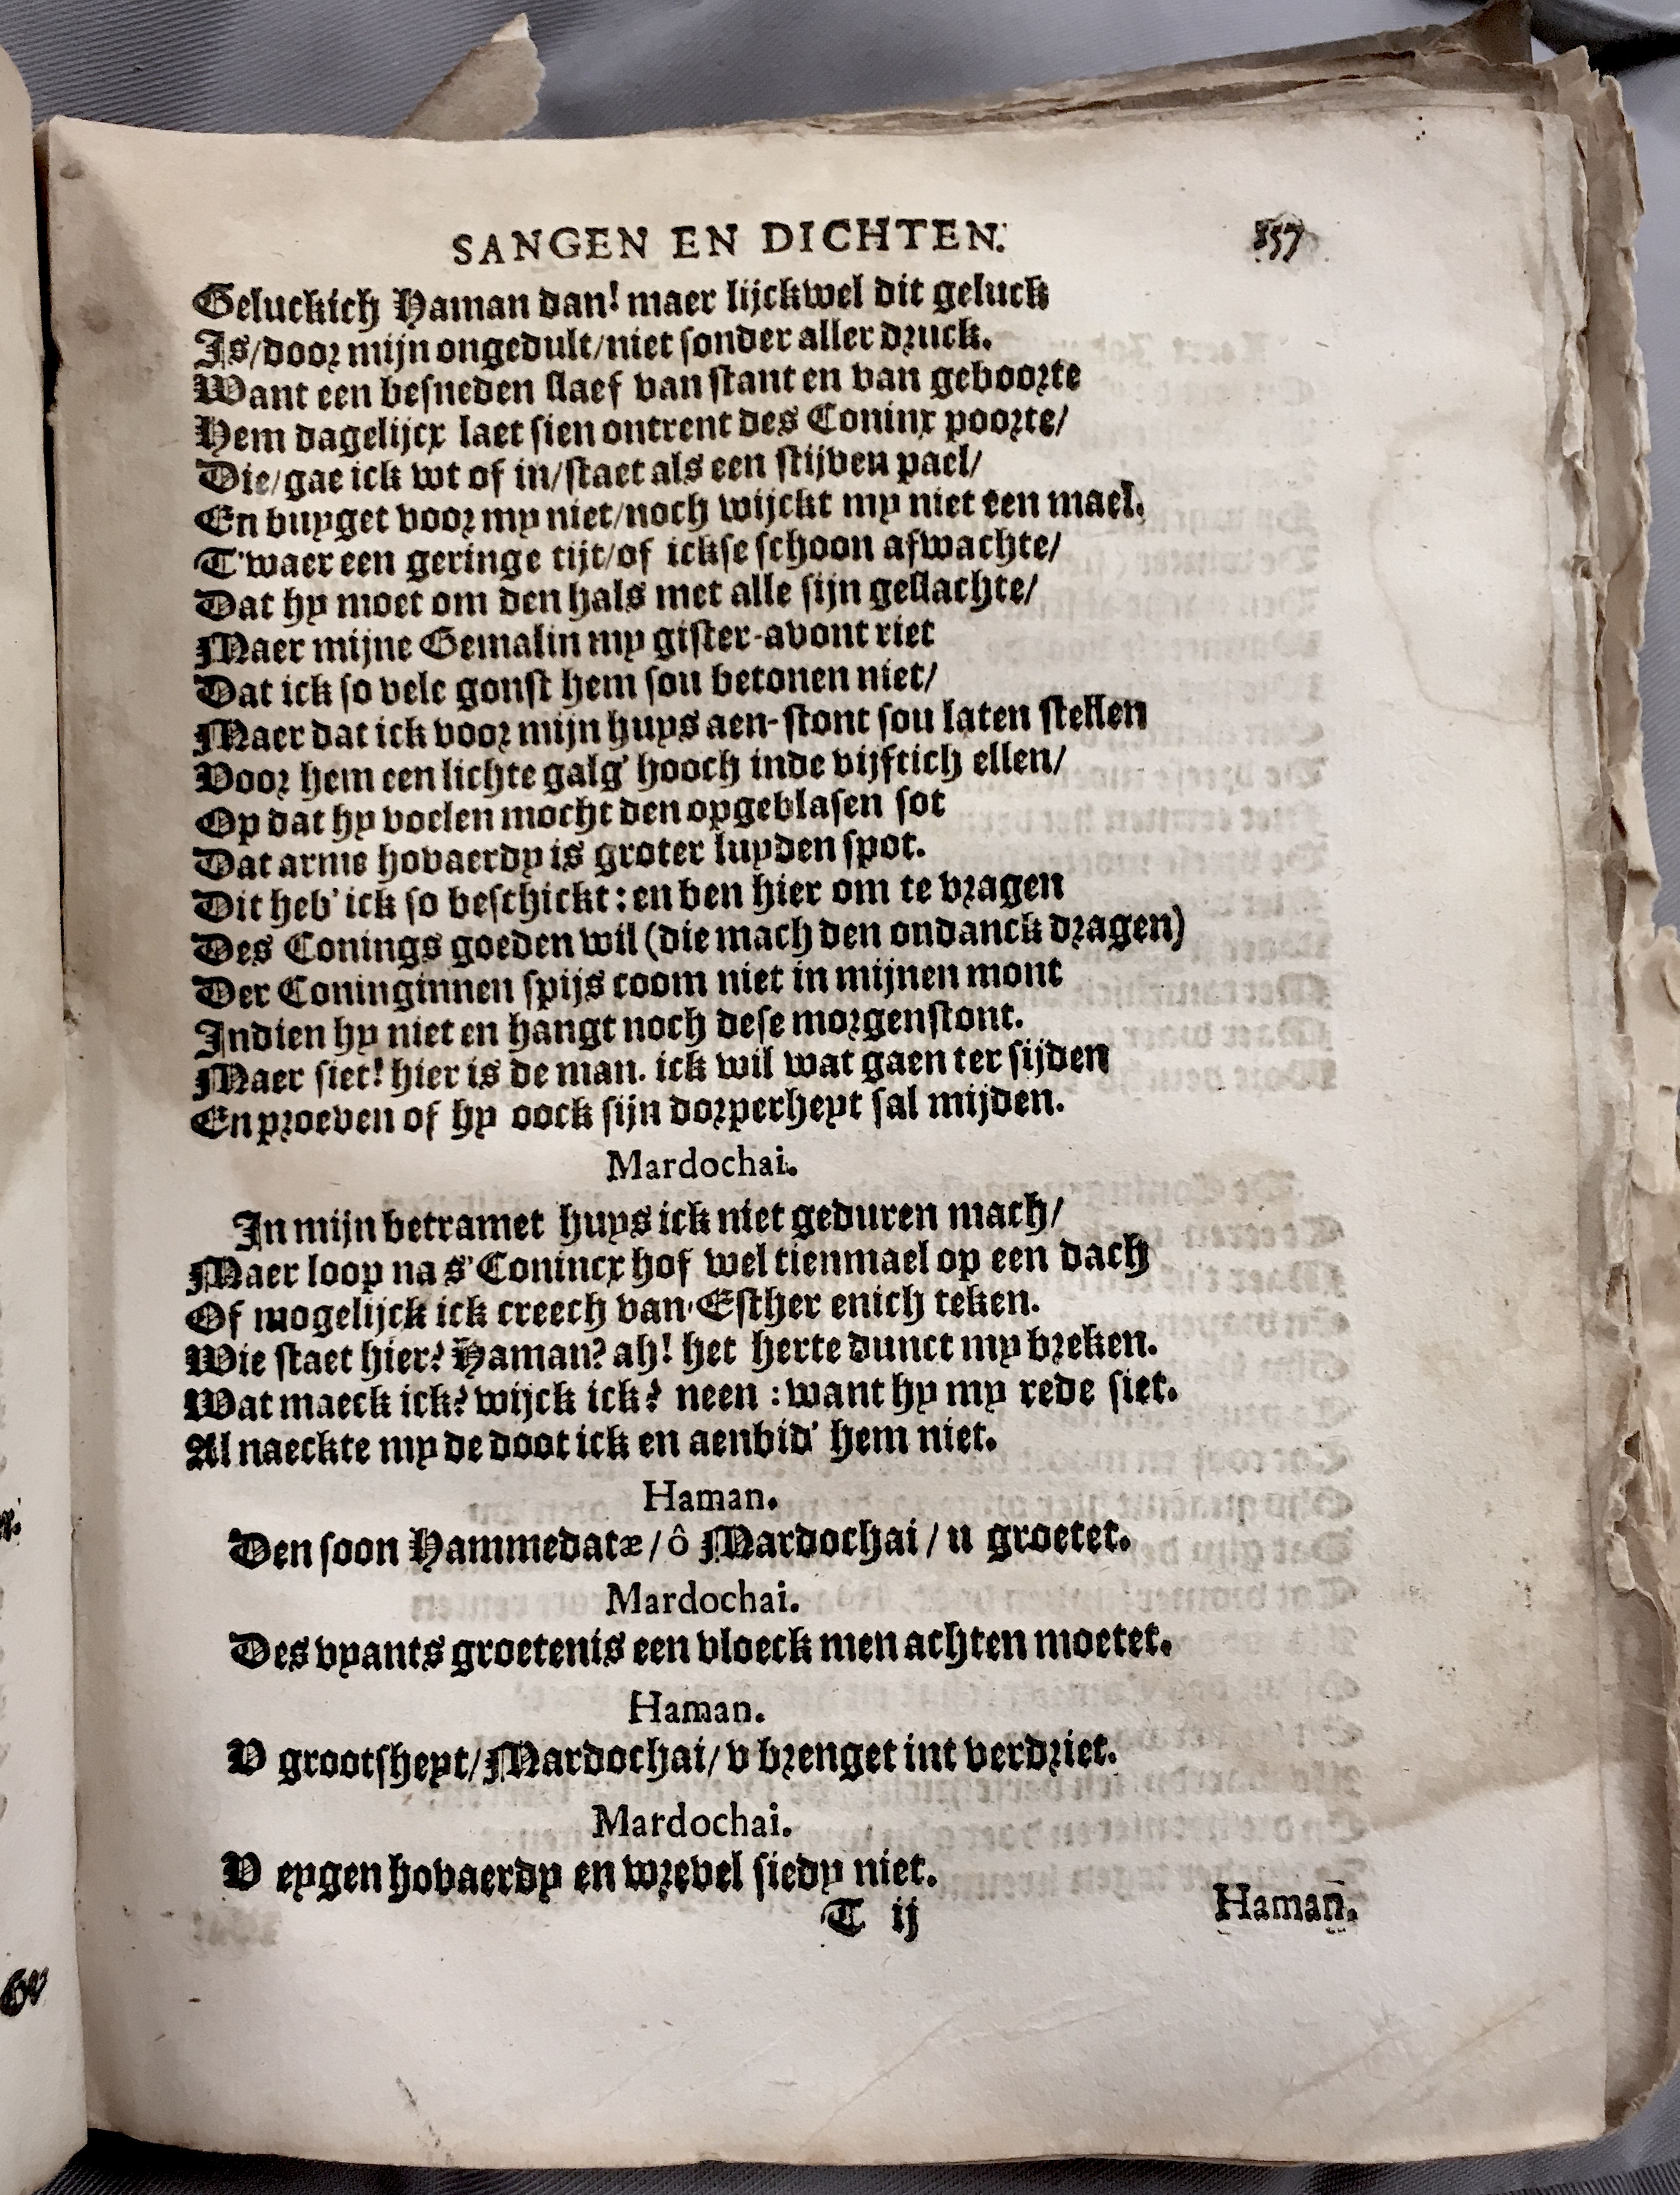 SANGEN EN DICHTEN. 157
Geluckich Haman dan! maer lijckwel dit geluck
Is/door mijn ongedult/niet sonder aller druck.
Want een besneden slaef van stant en van geboorte
Hem dagelijcx laet sien ontrent des Coninx poorte/
Die/gae ick wt of in/staet als een stijven pael/
En buyget voor my niet/noch wijckt my niet een mael.
T'waer een geringe tijt/of ickse schoon afwachte/
Dat hy moet om den hals met alle sijn geslachte/
Maer mijne Gemalin my gister-avont riet
Dat ick so vele gonst hem sou betonen niet/
Maer dat ick voor mijn huys aen-stont sou laten stellen
Voor hem een lichte galg' hooch inde vijftich ellen/
Op dat hy voelen mocht den opgeblasen sot
Dat arme hovaerdy is groter luyden spot.
Dit heb' ick so beschickt: en ben hier om te vragen
Des Conings goeden wil (die mach den ondanck dragen)
Der Coninginnen spijs coom niet in mijnen mont
Indien hy niet en hangt noch dese morgenstont.
Maer siet! hier is de man. ick wil wat gaen ter sijden
En proeven of hy oock sijn dorperheyt sal mijden.
Mardochai.
In mijn betramet huys ick niet geduren mach/
Maer loop na s'Conincx hof wel tienmael op een dach
Of mogelijck ick creech van Esther enich teken.
Wie staet hier? Haman? ah! het herte dunct my breken.
Wat maeck ick? wijck ick? neen : want hy my rede siet.
Al naeckte my de doot ick en aenbid' hem niet.
Haman.
Den soon Hammedatæ/ ô Mardochai / u groetet.
Mardochai.
Des vyants groetenis een vloeck men achten moetet.
Haman.
V grootsheyt/Mardochai/ v brenget int verdriet.
Mardochai.
V eygen hovaerdy en wrevel siedy niet.
T ij Haman.